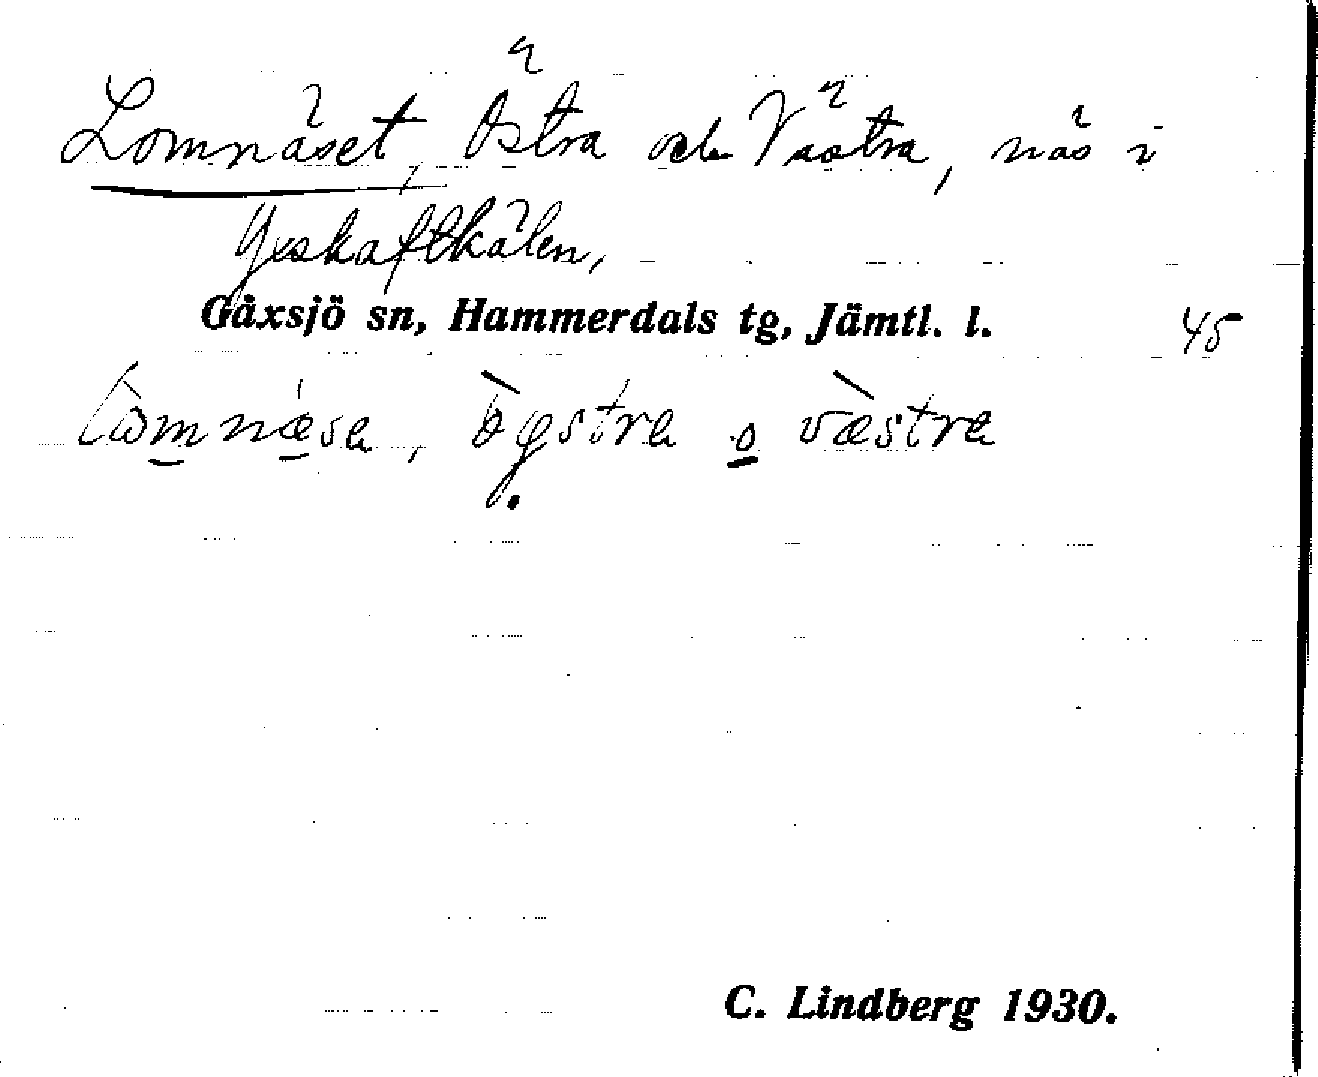 Lomnäset, Östra och Västra, näs i
Yxskaftkälen,
Gåxsjö sn, Hammerdals tg, Jämtl. l. 45
våstra
C. Lindberg 1930.